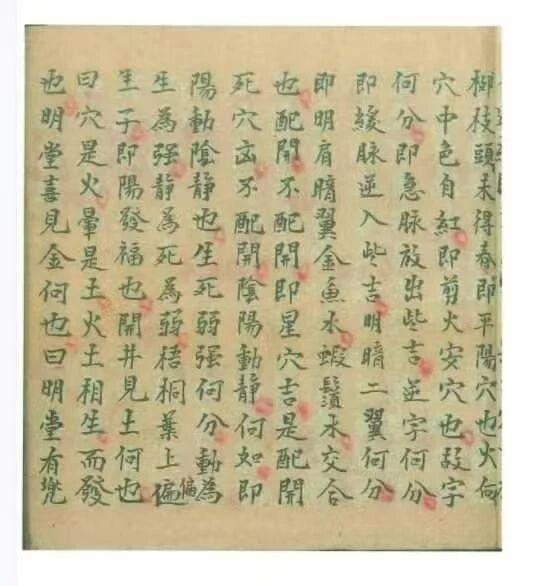 柳枝頭未得春即平陽穴也火向
穴中色自紅即剪火安穴也故字
何分即急脉放出些吉逆字何分
即緩脉逆入些吉明暗二翼何分
即明肩暗翼金魚水蝦鬚水交合
也配開不配開即星穴吉是配開
死穴凶不配開陰陽動静何如即
陽動陰静也生死弱强何分動為
生為强静為死為弱梧桐葉上偏偏
生子即陽發福也開井見土何也
曰穴是火暈是土火土相生而發
也明堂喜見金何也曰明堂有兜